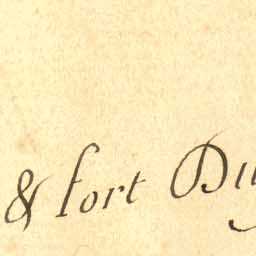 & fort Du